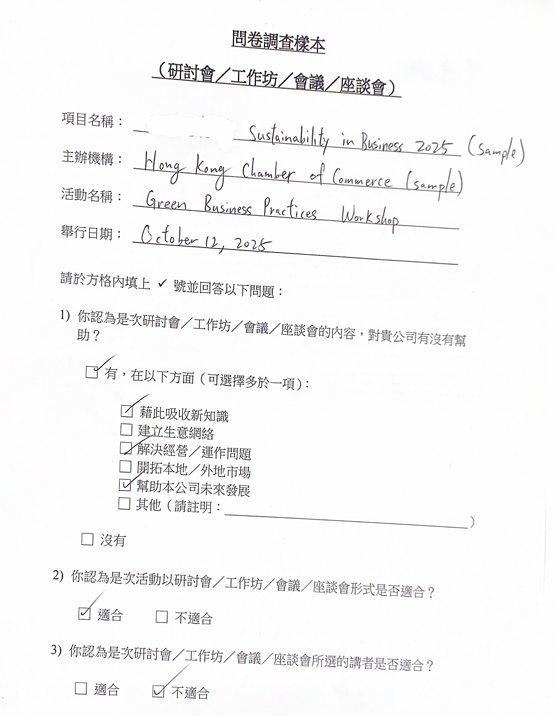 問卷調查樣本
（研討會／工作坊／會議／座談會）
項目名稱： Sustainability in Business 2025 (Sample)
主辦機構： Hong Kong Chamber of Commerce (sample)
活動名稱： Green Business Practices Workshop
舉行日期： October 12, 2025
請於方格內填上 ✓ 號並回答以下問題：
1) 你認為是次研討會／工作坊／會議／座談會的內容，對貴公司有沒有幫
助？
☑ 有，在以下方面（可選擇多於一項）：
☑ 藉此吸收新知識
☐ 建立生意網絡
☑ 解決經營／運作問題
☐ 開拓本地／外地市場
☑ 幫助本公司未來發展
☐ 其他（請註明：____________________）
☐ 沒有
2) 你認為是次活動以研討會／工作坊／會議／座談會形式是否適合？
☑ 適合 ☐ 不適合
3) 你認為是次研討會／工作坊／會議／座談會所選的講者是否適合？
☐ 適合 ☑ 不適合